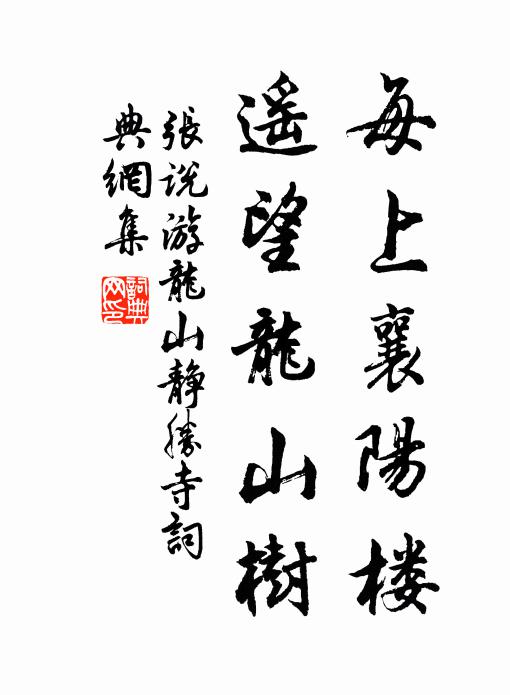 每上襄陽楼
遥望龍山樹
張说游龍山静勝寺詞
典網集
詞典
网印